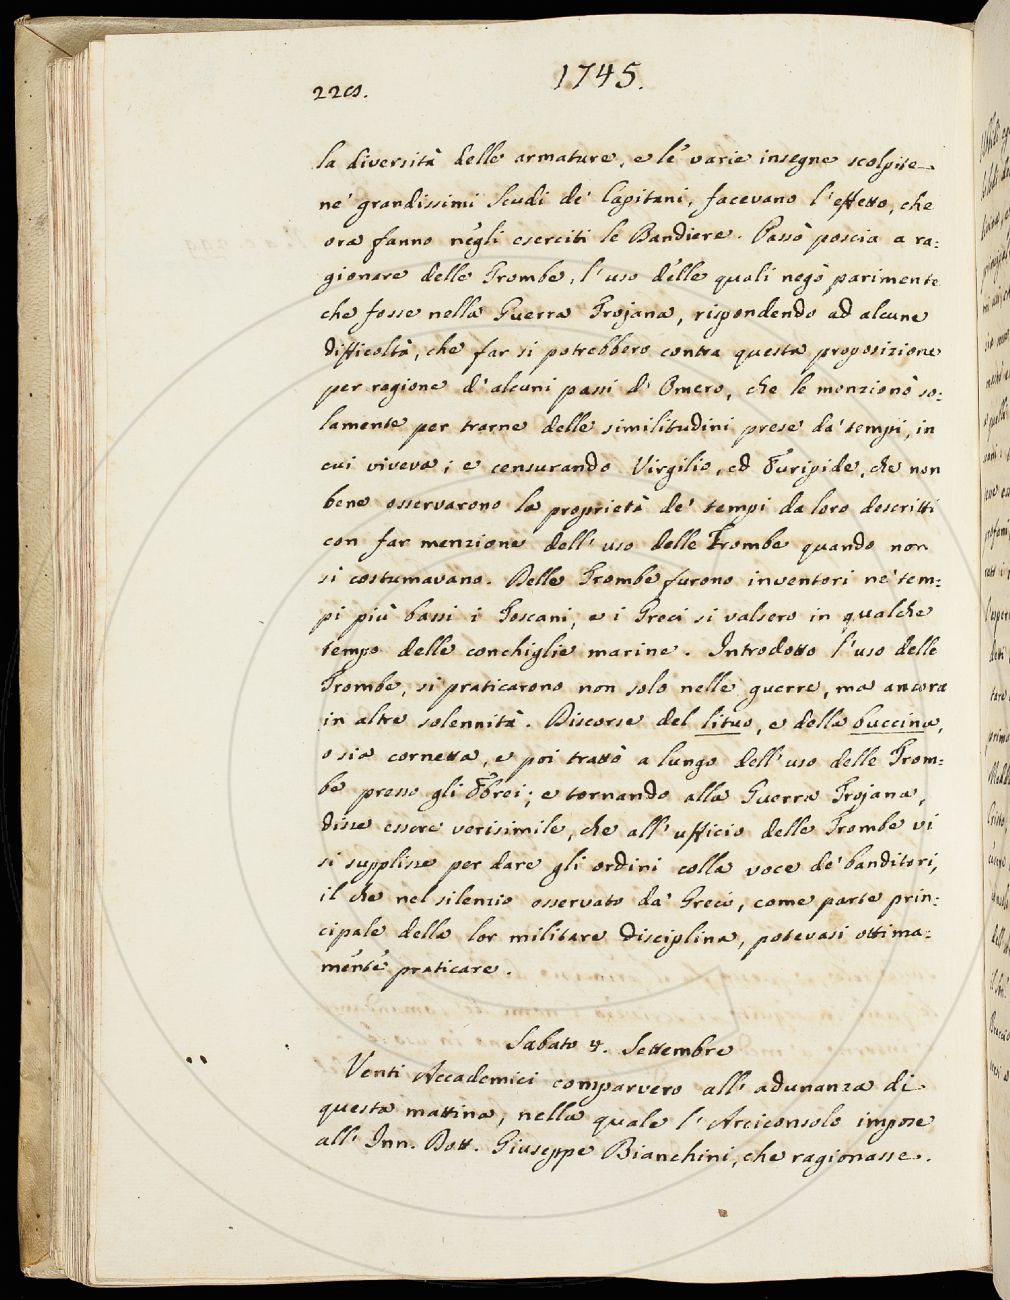 1745.
la diversità delle armature, e le varie insegne scolpite
ne' grandissimi Scudi de' Capitani, facevano l'effetto, che
ora fanno negli eserciti le Bandiere. Passò poscia a ra:
gionare delle Trombe, l'uso delle quali negò parimente
che fosse nella Guerra Trojana, rispondendo ad alcune
difficoltà, che far si potrebbero contra questa proposizione
per ragione d'alcuni passi d'Omero, che le menzionò so:
lamente per trarne delle similitudini prese da' tempi, in
cui viveva; e censurando Virgilio, ed Euripide, che non
bene osservarono la proprietà de' tempi da loro descritti
con far menzione dell'uso delle Trombe quando non
si costumavano. Delle Trombe furono inventori ne' tem:
pi più bassi i Toscani, e i Greci si valsero in qualche
tempo delle conchiglie marine. Introdotto l'uso delle
Trombe, si praticarono non solo nelle guerre, ma ancora
in altre solennità. Discorse del lituo, e della buccina,
o sia cornetta, e poi trattò a lungo dell'uso delle Trom:
be presso gli Ebrei; e tornando alla Guerra Trojana,
disse essere verisimile, che all'ufficio delle Trombe vi
si supplisse per dare gli ordini colla voce de' banditori,
il che nel silenzio osservato da' Greci, come parte prin:
cipale della lor militare disciplina, potevasi ottima:
mente praticare.
Sabato 4. Settembre
Venti Accademici comparvero all'adunanza di
questa mattina, nella quale l'Arciconsolo impose
all'Inn. Dott. Giuseppe Bianchini, che ragionasse.